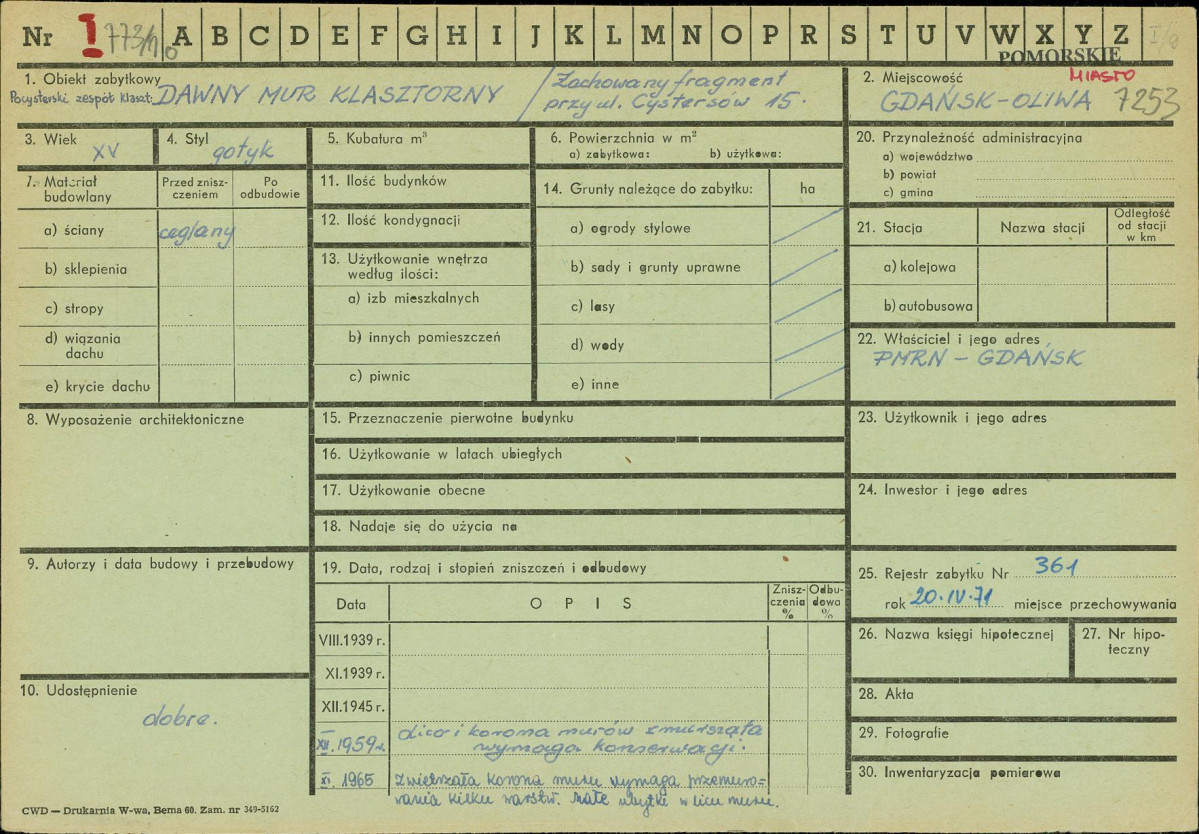 Nr I 773/10 A B C D E F G H I J K L M N O P R S T U V W X Y Z
POMORSKIE
1. Obiekt zabytkowy
Pocysterski zespół klaszt: DAWNY MUR KLASZTORNY / Zachowany fragment
przy ul. Cystersów 15.
2. Miejscowość MIASTO
GDAŃSK-OLIWA 7253
3. Wiek
XV
4. Styl
gotyk
5. Kubatura m³
6. Powierzchnia w m²
a) zabytkowa: b) użytkowa:
20. Przynależność administracyjna
a) województwo
b) powiat
c) gmina
7. Materiał budowlany
Przed zniszczeniem
Po odbudowie
a) ściany ceglany
b) sklepienia
c) stropy
d) wiązania dachu
e) krycie dachu
11. Ilość budynków
12. Ilość kondygnacji
13. Użytkowanie wnętrza
według ilości:
a) izb mieszkalnych
b) innych pomieszczeń
c) piwnic
14. Grunty należące do zabytku: ha
a) ogrody stylowe
b) sady i grunty uprawne
c) lasy
d) wody
e) inne
21. Stacja Nazwa stacji Odległość od stacji w km
a) kolejowa
b) autobusowa
22. Właściciel i jego adres
PMRN - GDAŃSK
8. Wyposażenie architektoniczne
15. Przeznaczenie pierwotne budynku
16. Użytkowanie w latach ubiegłych
17. Użytkowanie obecne
18. Nadaje się do użycia na
23. Użytkownik i jego adres
24. Inwestor i jego adres
9. Autorzy i data budowy i przebudowy
19. Data, rodzaj i stopień zniszczeń i odbudowy
Data OPIS Zniszczenia % Odbudowa %
VIII.1939 r.
XI.1939 r.
XII.1945 r.
XII.1959 r. Lico i korona murów zmurszała
wymaga konserwacji.
XI. 1965 Zwietrzała korona muru wymaga przemuro=
wania kilku warstw. Małe ubytki w licu muru.
25. Rejestr zabytku Nr 361
rok 20.IV.71 miejsce przechowywania
26. Nazwa księgi hipotecznej
27. Nr hipoteczny
10. Udostępnienie
dobre.
28. Akta
29. Fotografie
30. Inwentaryzacja pomiarowa
CWD — Drukarnia W-wa, Bema 60. Zam. nr 349-5162